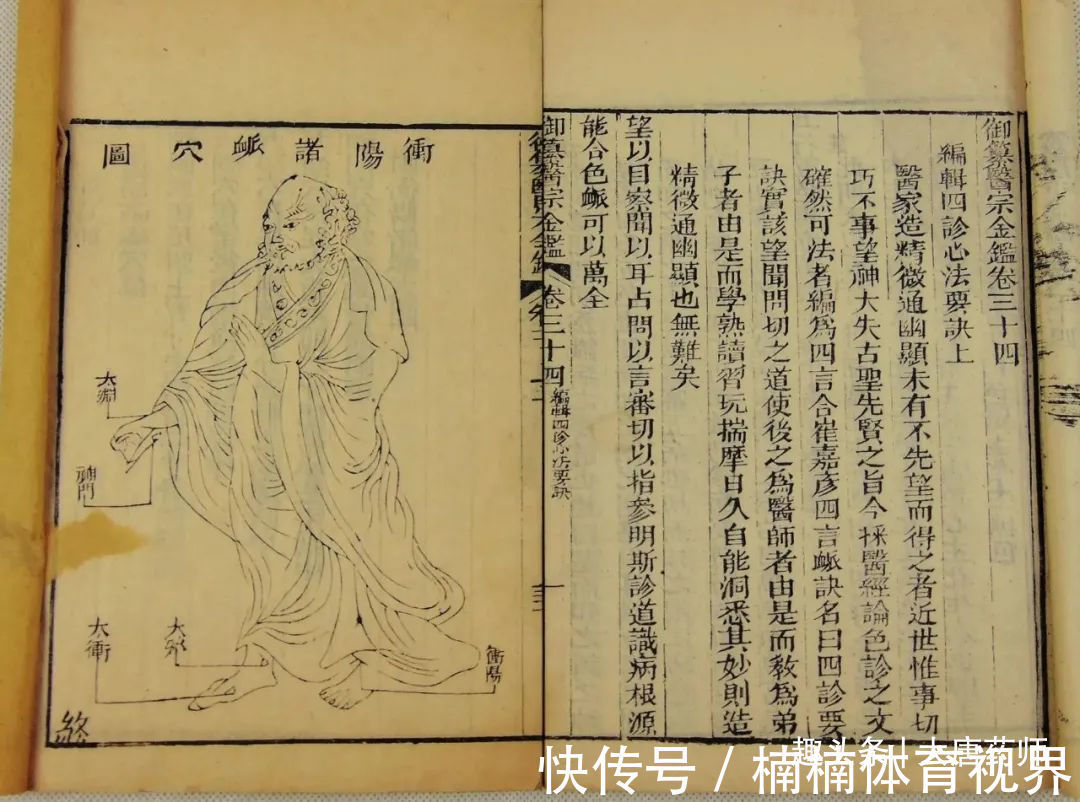 御纂醫宗金鑑卷三十四
編輯四診心法要訣上
醫家造精微通幽顯未有不先望而得之者近世惟事切
巧不事望神大失古聖先賢之旨今採醫經論色診之文
確然可法者編爲四言合崔嘉彥四言䘑訣名曰四診要
訣實該望聞問切之道使後之爲醫師者由是而教爲弟
子者由是而學熟讀習玩揣摩日久自能洞悉其妙則造
精微通幽顯也無難矣
望以目察聞以耳占問以言審切以指參明斯診道識病根源
能合色䘑可以萬全
御纂醫宗金鑑
卷三十四
編輯四診心法要訣
衝陽諸䘑穴圖
太淵
神門
太衝
太谿
衝陽
終
趣头条 | 大唐药师
快传号 / 楠楠体育视界